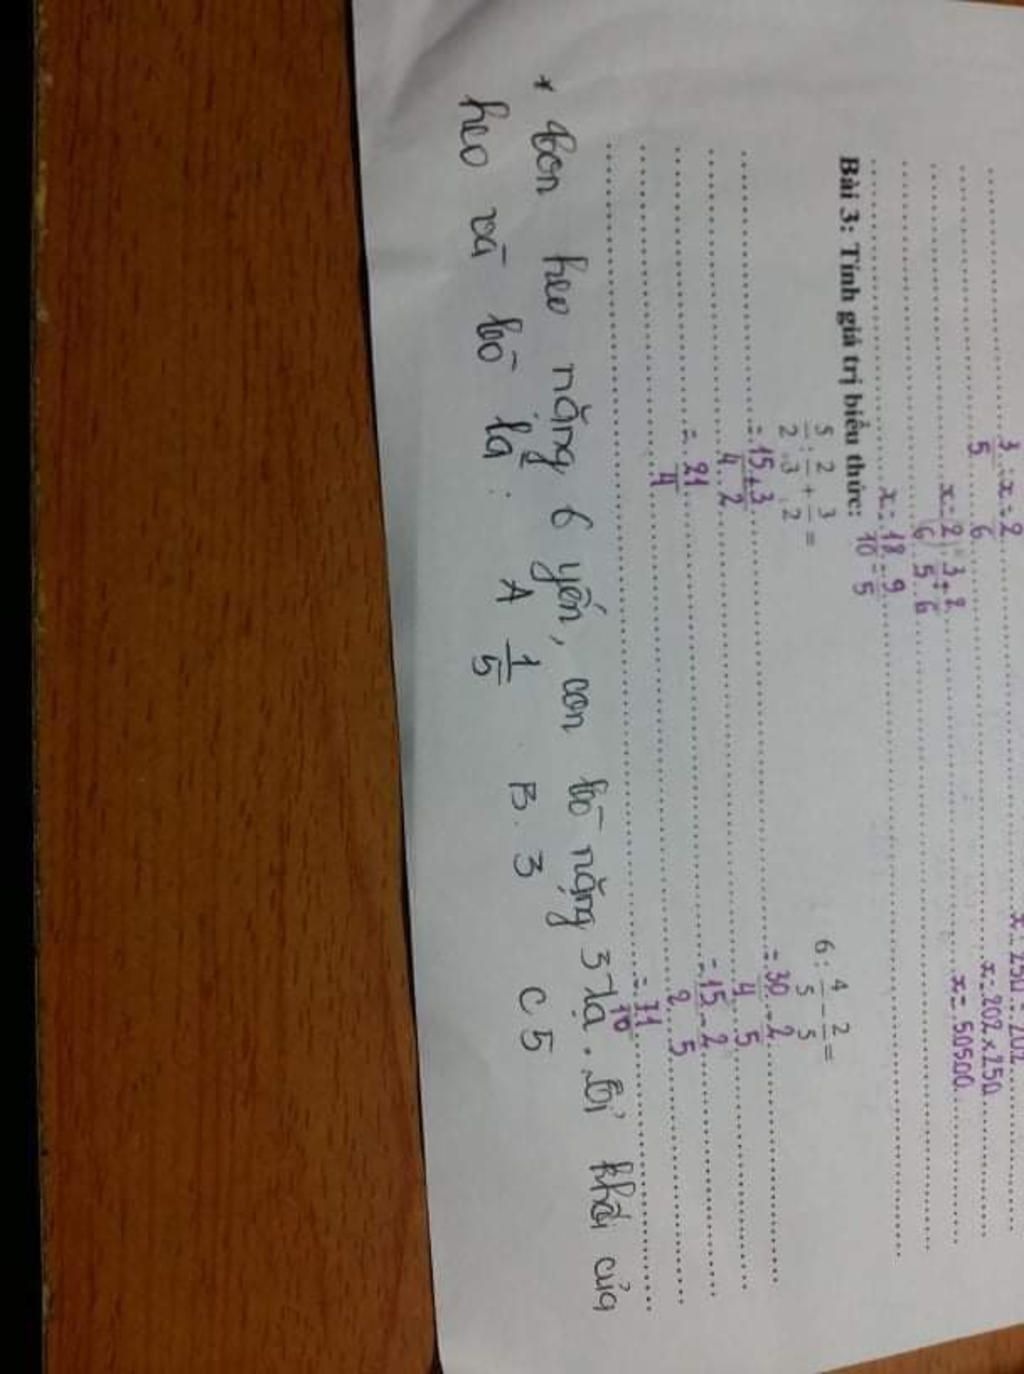 3/5 : x = 2/6
x = 2/6 : 3/5 + 2/6
x = 18/10 = 9/5
x : 250 = 202
x = 202 x 250
x = 50500
Bài 3: Tính giá trị biểu thức:
5/2 : 2/3 + 3/2 =
= 15/4 + 3/2
= 21/4
6 : 4/5 - 2/5 =
= 30/4 - 2/5
= 15/2 - 2/5
= 71/10
* Con heo nặng 6 yến, con bò nặng 3 tạ. Tỉ khối của
heo và bò là: A 1/5 B. 3 C 5